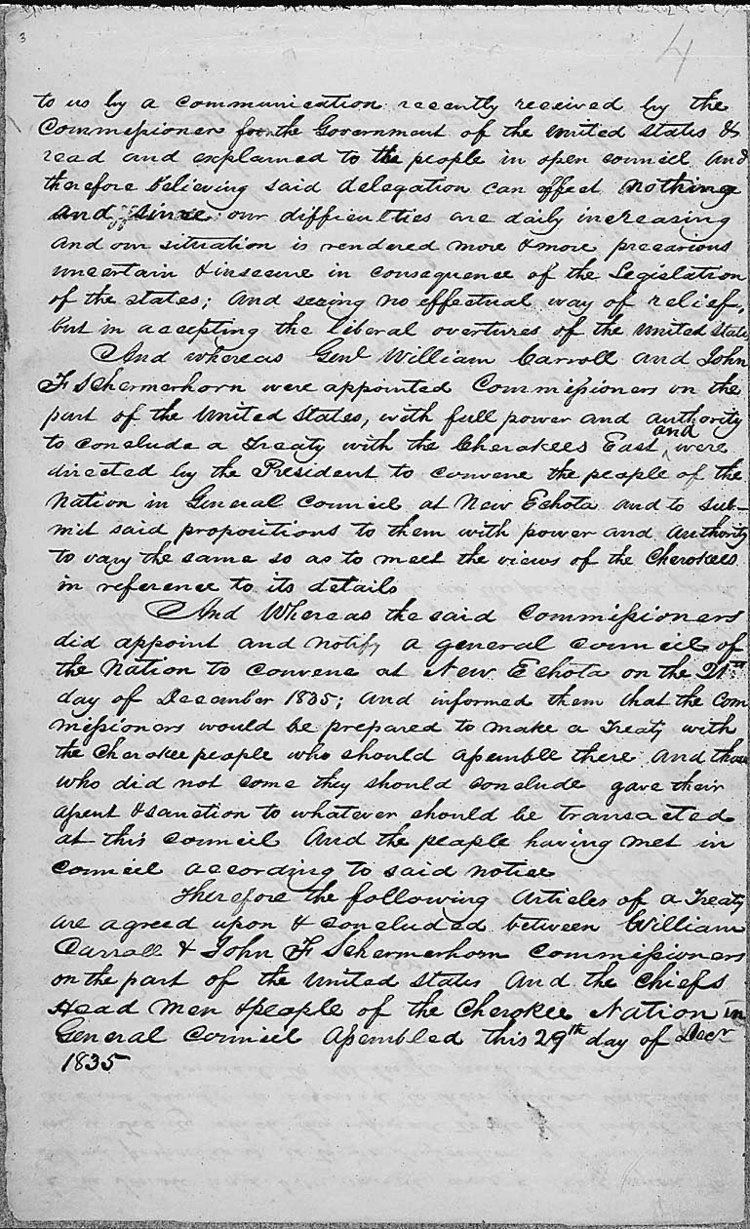 3
4
to us by a communication recently received by the
Commissioner from the Government of the United States &
read and explained to the people in open council And
therefore believing said delegation can effect nothing
and since our difficulties are daily increasing
and our situation is rendered more & more precarious
uncertain & insecure in consequence of the Legislation
of the states; And seeing no effectual way of relief,
but in accepting the liberal overtures of the United States
And whereas Genl William Carroll and John
F Schermerhorn were appointed Commissioners on the
part of the United States, with full power and authority
to conclude a Treaty with the Cherokees East and were
directed by the President to convene the people of the
Nation in General Council at New Echota and to sub-
mit said propositions to them with power and authority
to vary the same so as to meet the views of the Cherokees
in reference to its details
And Whereas the said Commissioners
did appoint and notify a general council of
the Nation to convene at New Echota on the 21st
day of December 1835; And informed them that the Com
missioners would be prepared to make a Treaty with
the Cherokee people who should assemble there And those
who did not come they should conclude gave their
assent & sanction to whatever should be transacted
at this council And the people having met in
council according to said notice
Therefore the following Articles of a Treaty
are agreed upon & concluded between William
Carroll & John F Schermerhorn Commissioners
on the part of the United States And the Chiefs
Head Men & people of the Cherokee Nation in
General Council Assembled this 29th day of Decr
1835